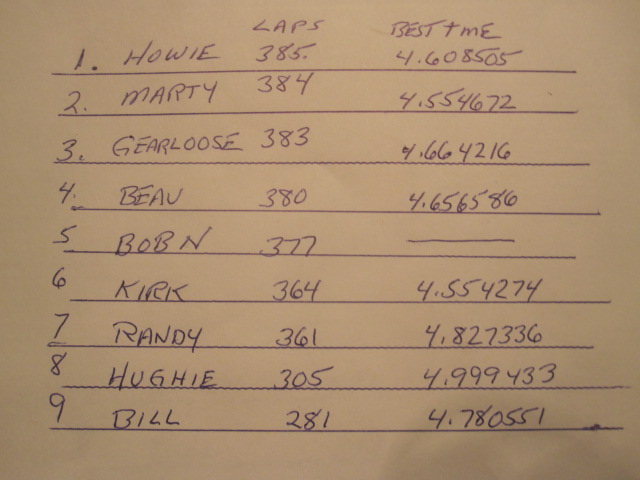 LAPS BEST TIME
1. HOWIE 385. 4.608505
2. MARTY 384 4.554672
3. GEARLOOSE 383 4.664216
4. BEAU 380 4.656586
5 BOB N 377 ———
6 KIRK 364 4.554274
7 RANDY 361 4.827336
8 HUGHIE 305 4.999433
9 BILL 281 4.780551